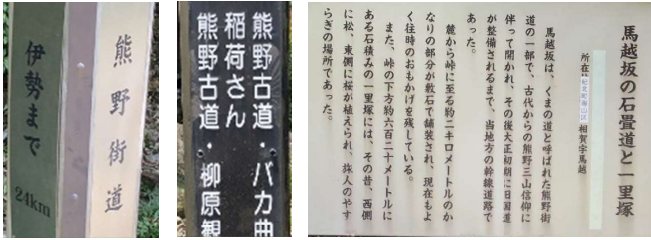 伊勢まで
24km
熊野街道
熊野古道・バカ曲
稲荷さん
熊野古道・柳原観
馬越坂の石畳道と一里塚
所在地 紀北町海山区 相賀字馬越
馬越坂は、くまの道と呼ばれた熊野街
道の一部で、古代からの熊野三山信仰に
伴って開かれ、その後大正初期に旧国道
が整備されるまで、当地方の幹線道路で
あった。
麓から峠に至る約二キロメートルのか
なりの部分が敷石で舗装され、現在もよ
く往時のおもかげを残している。
また、峠の下方約六百二十メートルに
ある石積みの一里塚には、その昔、西側
に松、東側に桜が植えられ、旅人のやす
らぎの場所であった。